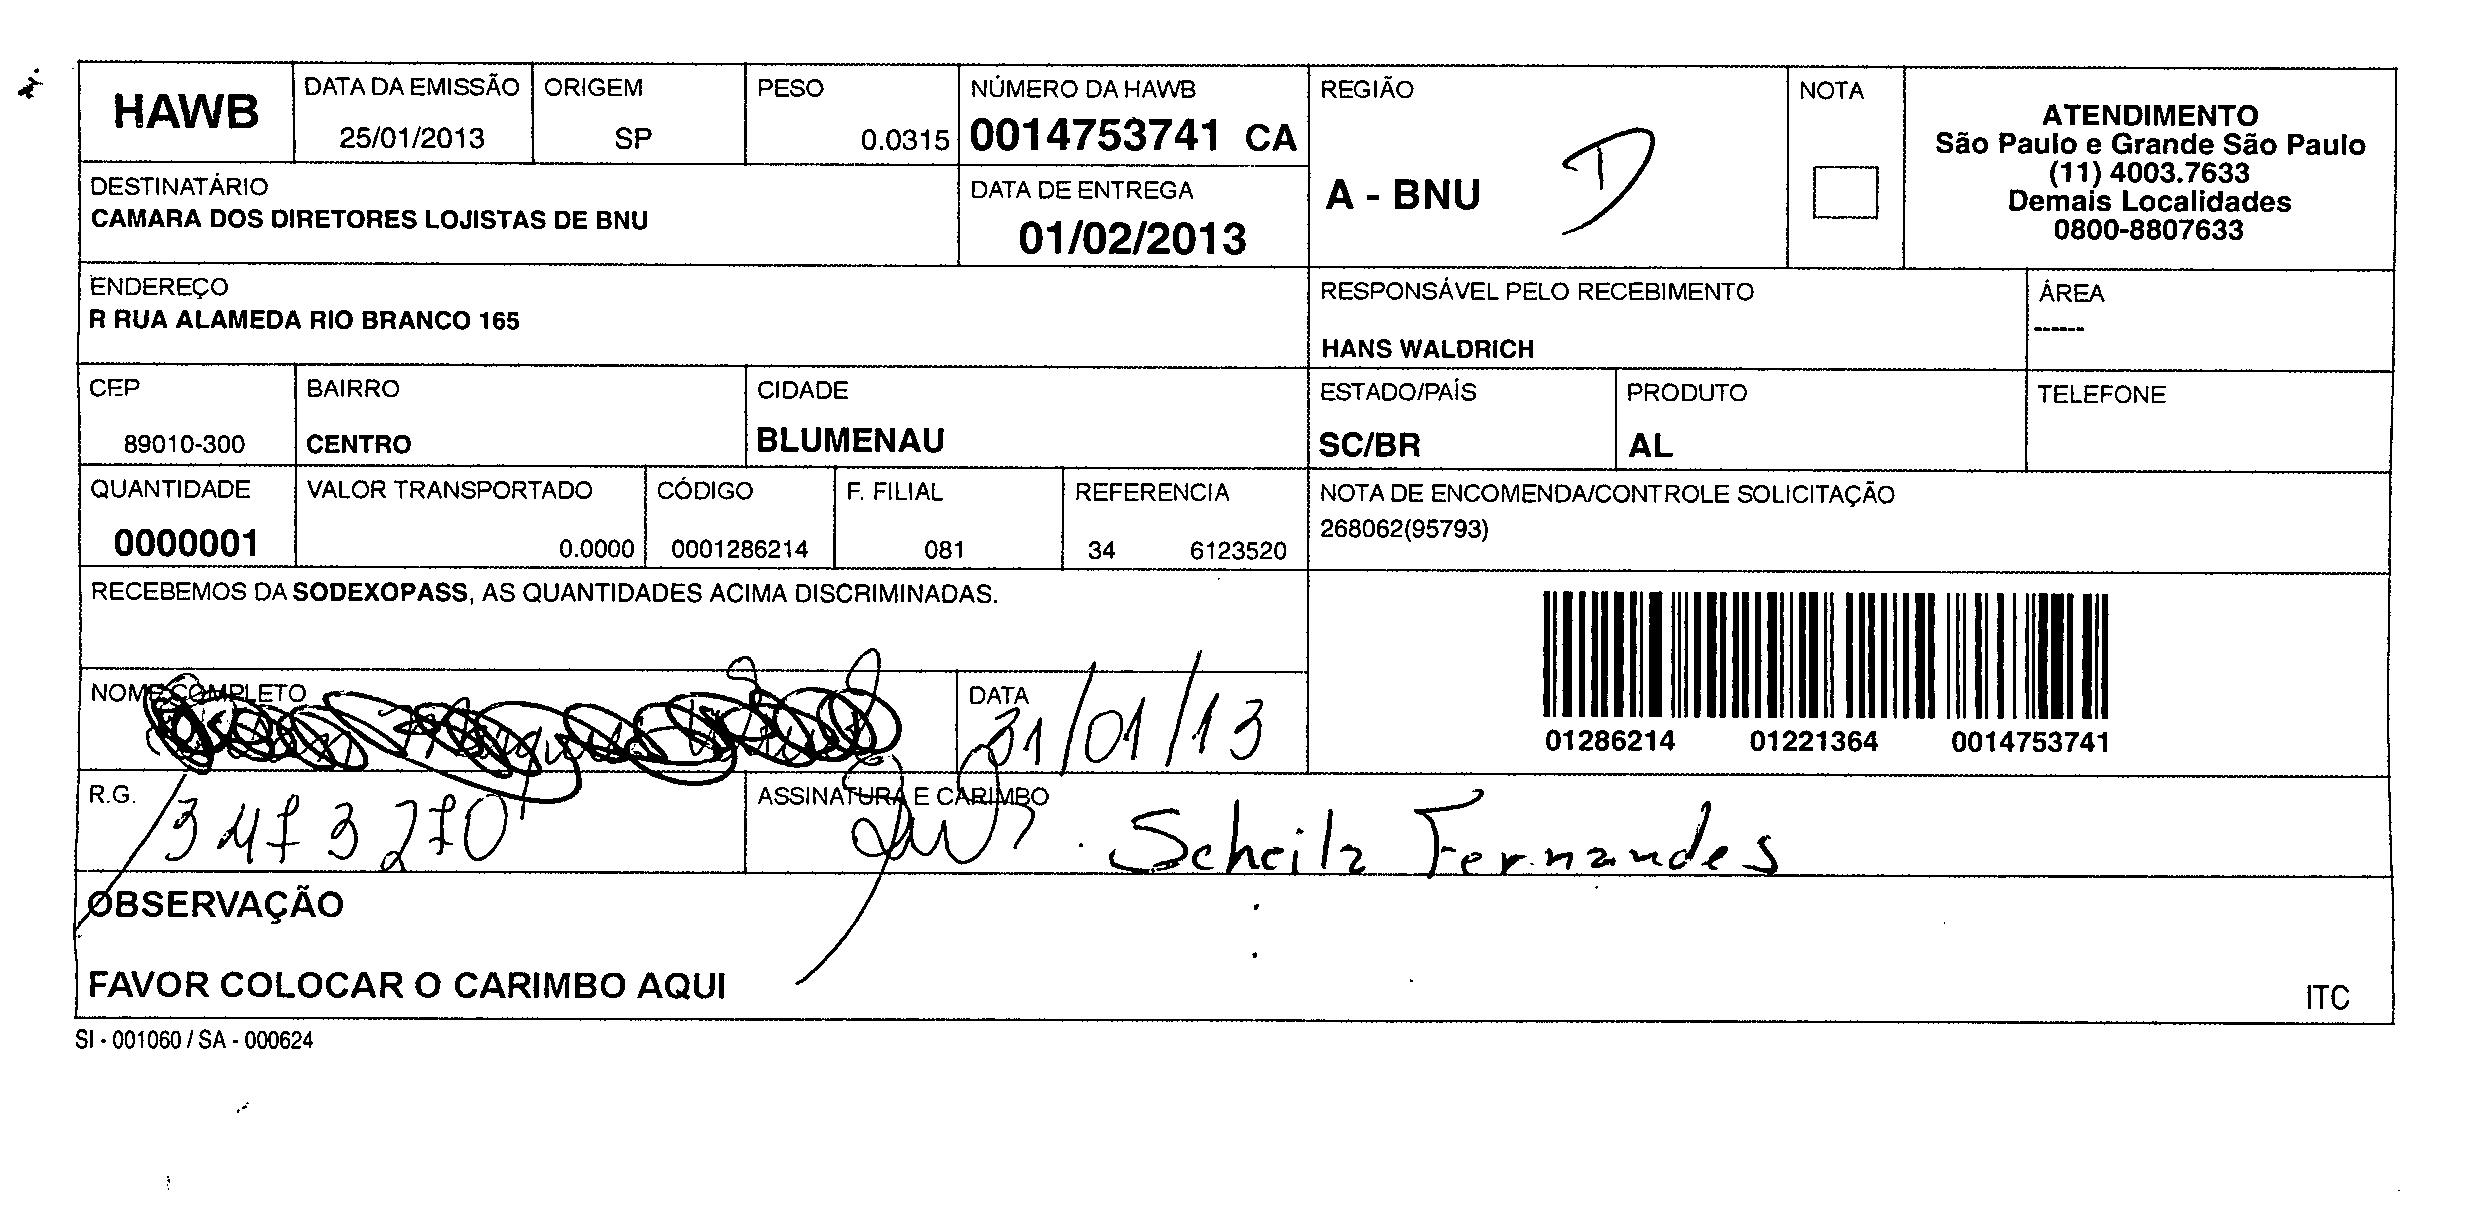 HAWB
DATA DA EMISSÃO
25/01/2013
ORIGEM
SP
PESO
0.0315
NÚMERO DA HAWB
0014753741 CA
REGIÃO
A - BNU
NOTA
ATENDIMENTO
São Paulo e Grande São Paulo
(11) 4003.7633
Demais Localidades
0800-8807633
DESTINATÁRIO
CAMARA DOS DIRETORES LOJISTAS DE BNU
DATA DE ENTREGA
01/02/2013
ENDEREÇO
R RUA ALAMEDA RIO BRANCO 165
RESPONSÁVEL PELO RECEBIMENTO
HANS WALDRICH
ÁREA
------
CEP
89010-300
BAIRRO
CENTRO
CIDADE
BLUMENAU
ESTADO/PAÍS
SC/BR
PRODUTO
AL
TELEFONE
QUANTIDADE
0000001
VALOR TRANSPORTADO
0.0000
CÓDIGO
0001286214
F. FILIAL
081
REFERENCIA
34 6123520
NOTA DE ENCOMENDA/CONTROLE SOLICITAÇÃO
268062(95793)
RECEBEMOS DA SODEXOPASS, AS QUANTIDADES ACIMA DISCRIMINADAS.
01286214 01221364 0014753741
NOME COMPLETO
DATA
31/01/13
R.G.
3473270
ASSINATURA E CARIMBO
Scheila Fernandes
OBSERVAÇÃO
FAVOR COLOCAR O CARIMBO AQUI
ITC
SI - 001060 / SA - 000624